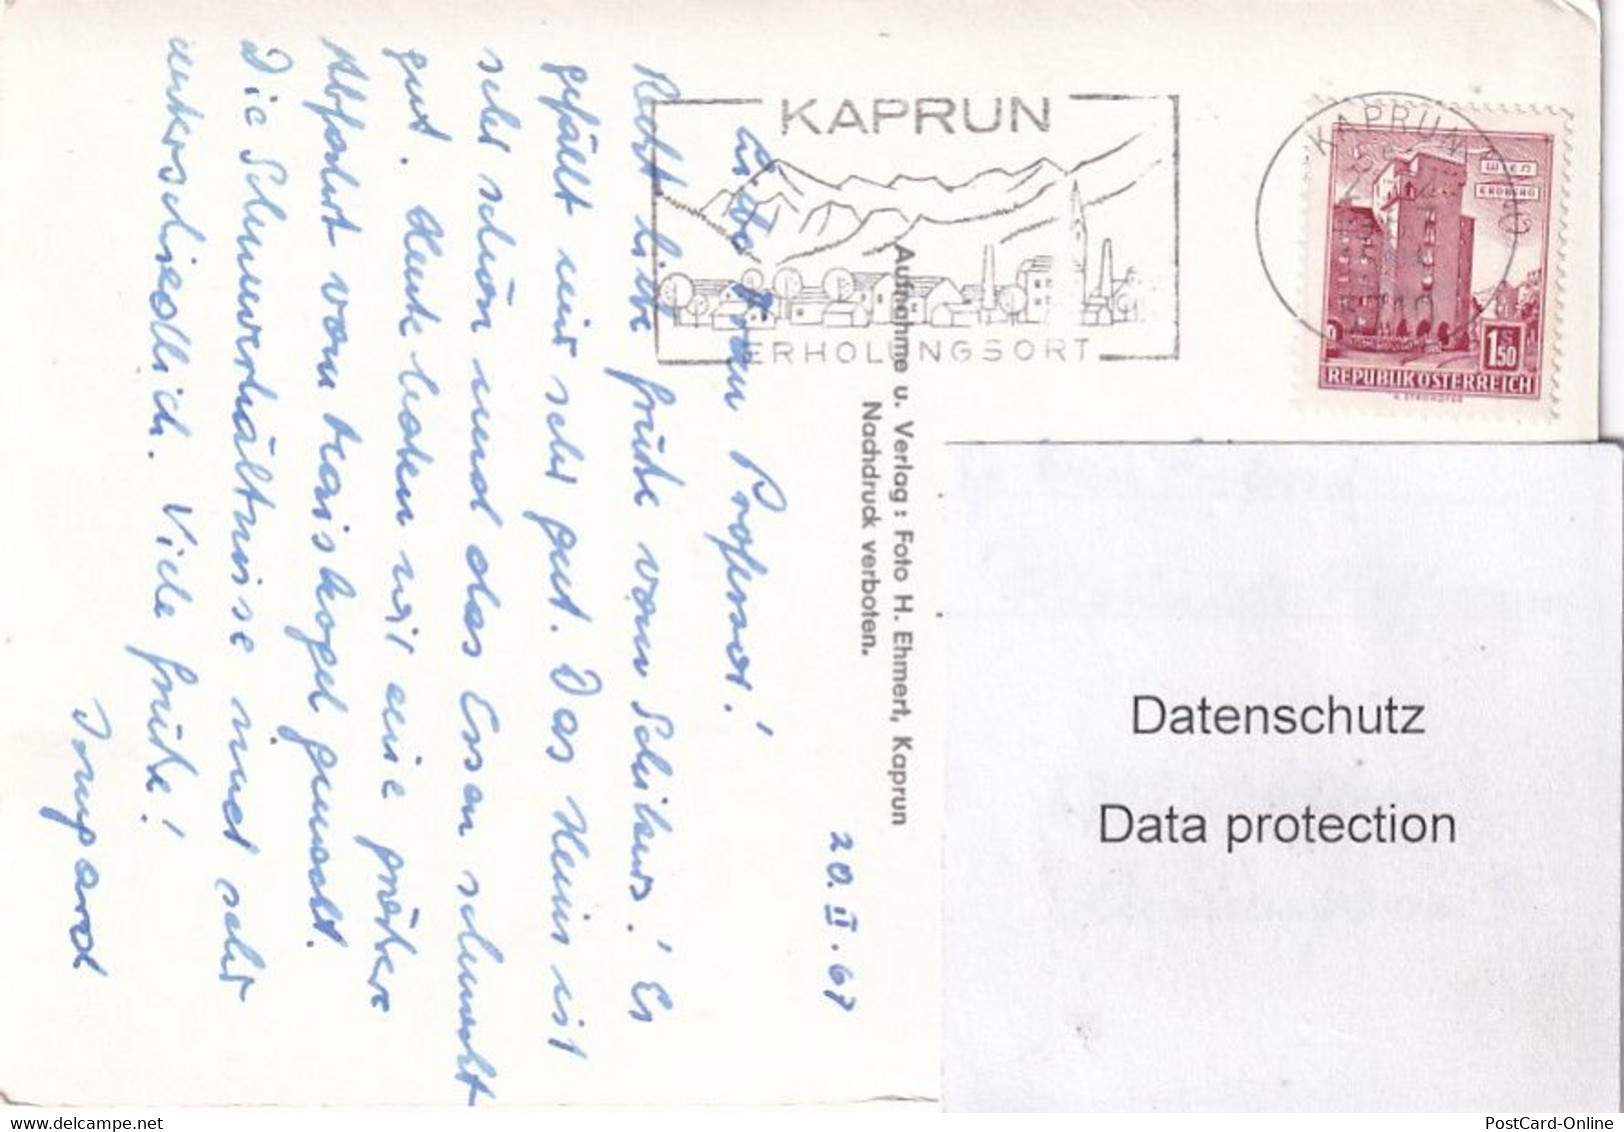 KAPRUN
ERHOLUNGSORT
KAPRUN
WIEN
ERDBERG
1 S 50
REPUBLIK ÖSTERREICH
Aufnahme u. Verlag: Foto H. Ehmert, Kaprun
Nachdruck verboten.
20. II. 67
Liebe Frau Professor!
Recht liebe Grüße vom Schikurs! Es
gefällt mir sehr gut. Das Heim ist
sehr schön und das Essen schmeckt
gut. Heute haben wir eine größere
Abfahrt vom Maiskogel gemacht.
Die Schneeverhältnisse sind sehr
unterschiedlich. Viele Grüße!
Irmgard
Datenschutz
Data protection
PostCard-Online